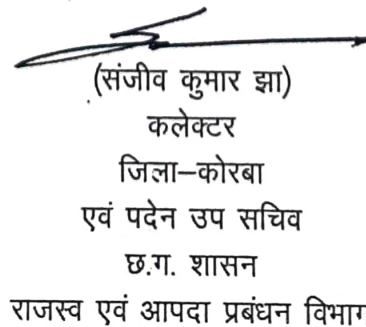 (संजीव कुमार झा)
कलेक्टर
जिला–कोरबा
एवं पदेन उप सचिव
छ.ग. शासन
राजस्व एवं आपदा प्रबंधन विभाग